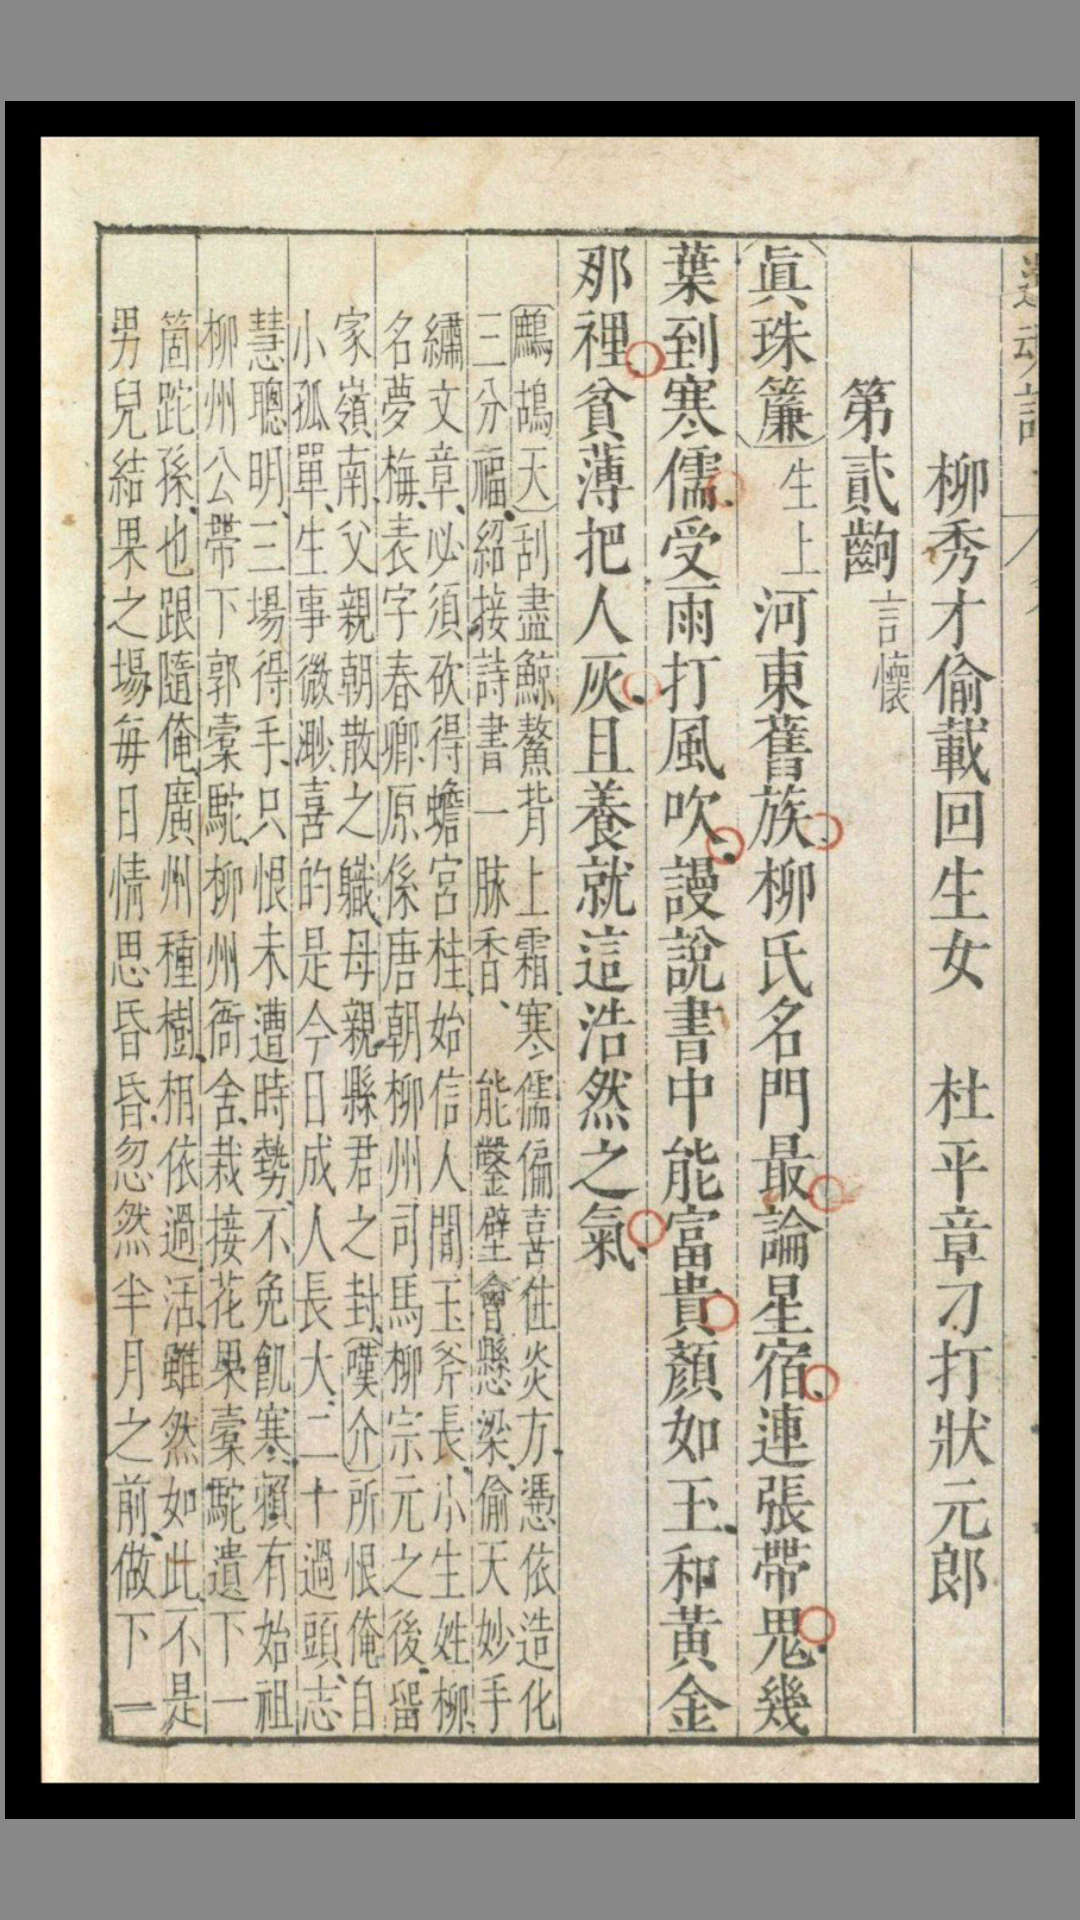 還魂記
柳秀才偷載回生女　杜平章刁打狀元郎
第貳齣 言懷
眞珠簾 生上 河東舊族柳氏名門最論星宿連張帶鬼幾
葉到寒儒受雨打風吹謾說書中能富貴顏如玉和黃金
那裡貧薄把人灰且養就這浩然之氣
鷓鴣天 刮盡鯨鰲背上霜寒儒偏喜住炎方憑依造化
三分福紹接詩書一脉香、能鑿壁會懸梁偷天妙手
繡文章必須砍得蟾宮桂始信人間玉斧長小生姓柳
名夢梅表字春卿原係唐朝柳州司馬柳宗元之後留
家嶺南父親朝散之職母親縣君之封嘆介所恨俺自
小孤單生事微渺喜的是今日成人長大二十過頭志
慧聰明三場得手只恨未遭時勢不免飢寒賴有始祖
柳州公帶下郭橐駝柳州衙舍栽接花果橐駝遺下一
箇跎孫也跟隨俺廣州種樹相依過活雖然如此不是
男兒結果之場每日情思昏昏忽然半月之前做下一